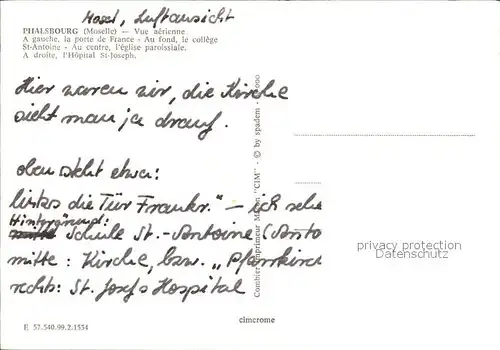 Mosel, Luftansicht
PHALSBOURG (Moselle) — Vue aérienne
A gauche, la porte de France - Au fond, le collège
St-Antoine - Au centre, l'église paroissiale.
A droite, l'Hôpital St-Joseph.
Hier waren wir, die Kirche
sieht man ja drauf.
oben steht etwa:
links die Tür Frankr." – ich sehe
Hintergrund:
Schule St.-Antoine (Anto
mitte: Kirche, bzw. „Pfarrkirch
rechts: St. Josefs Hospital
Combier Imprimeur Mâcon "CIM" - © by spadem
privacy protection
Datenschutz
cimcrome
E 57.540.99.2.1534